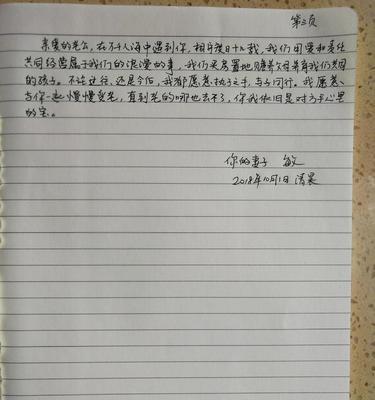 第三页
亲爱的老公,在千人海中遇到你,相守相日十九载,我们用爱和责任
共同经营属于我们的浪漫故事,我们买房置地,赡养父母养育我们共同
的孩子。不论过往,还是今后,我都愿意执子之手,与子同行。我愿意
与你一起慢慢变老,直到老的哪也去不了,你我依旧是对方手心里
的宝。
你的妻子 敏
2018年10月1日 清晨